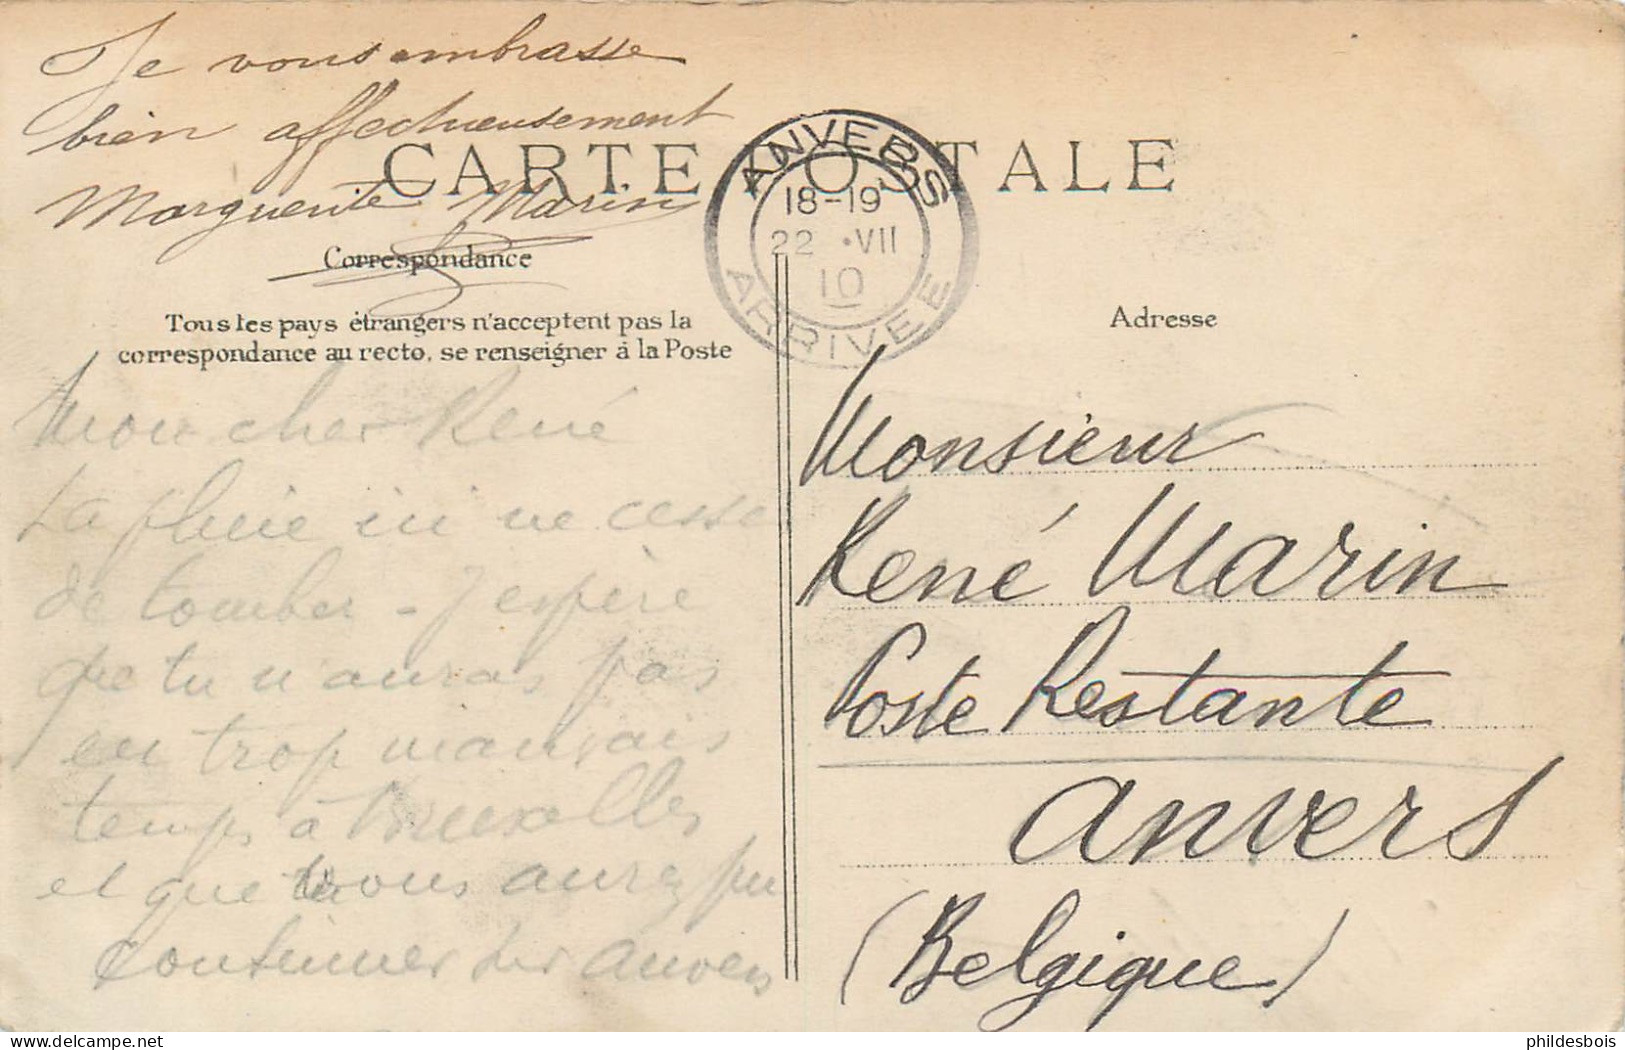 Je vous embrasse
bien affectueusement
CARTE POSTALE
Marguerite Marin
Correspondance
Tous les pays étrangers n'acceptent pas la
correspondance au recto, se renseigner à la Poste
Mon cher René
La pluie ici ne cesse
de tomber - J'espère
que tu n'auras pas
eu trop mauvais
temps à Bruxelles
et que vous aurez pu
continuer sur Anvers
ANVERS
18-19
22 •VII
10
ARRIVEE
Adresse
Monsieur
René Marin
Poste Restante
Anvers
(Belgique)
phildesbois